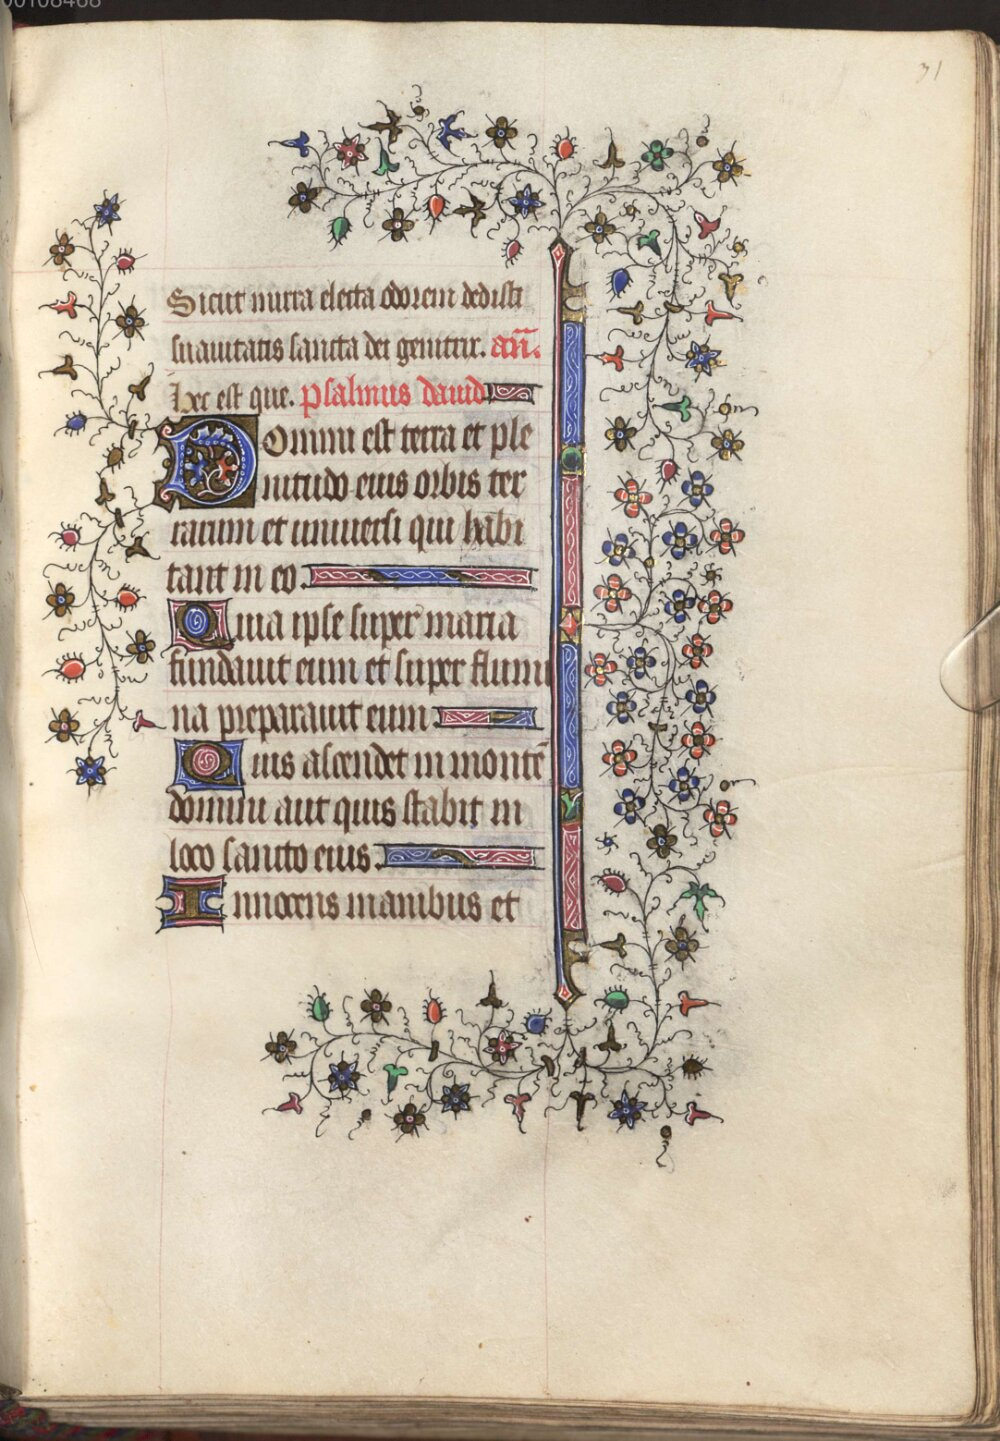 00108468
31
Sicut mirra electa odorem dedisti
suauitatis sancta dei genitrix. an̄.
Hec est que. psalmus dauid
Domini est terra et ple
nitudo eius orbis ter
rarum et uniuersi qui habi
tant in eo.
Quia ipse super maria
fundauit eum et super flumi
na preparauit eum.
Quis ascendet in montē
domini aut quis stabit in
loco sancto eius.
Innocens manibus et